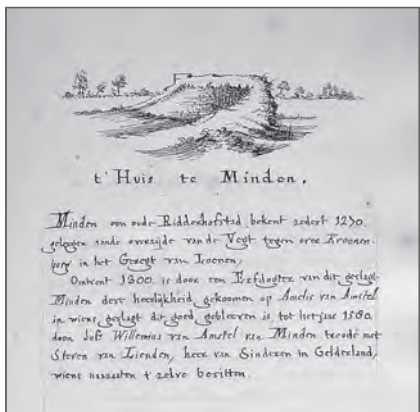 t'Huis te Minden.
Minden een oude Ridderhofstad bekent zedert 1230.
geleegen aande overzijde van de Vegt tegen over Kroonen-
berg in het Gregt van Loenen,
Omtrent 1300 is door een Erfdogter van dit geslagt
Minden dese heerlijkheid gekoomen op Amelis van Amstel
in wiens geslagt dit goed gebleeven is, tot het jaar 1580
doen Joff Willemina van Amstel van Minden troude met
Steven van Lienden, heer van Sinderen in Gelderland,
wiens nazaaten t zelve bezitten.